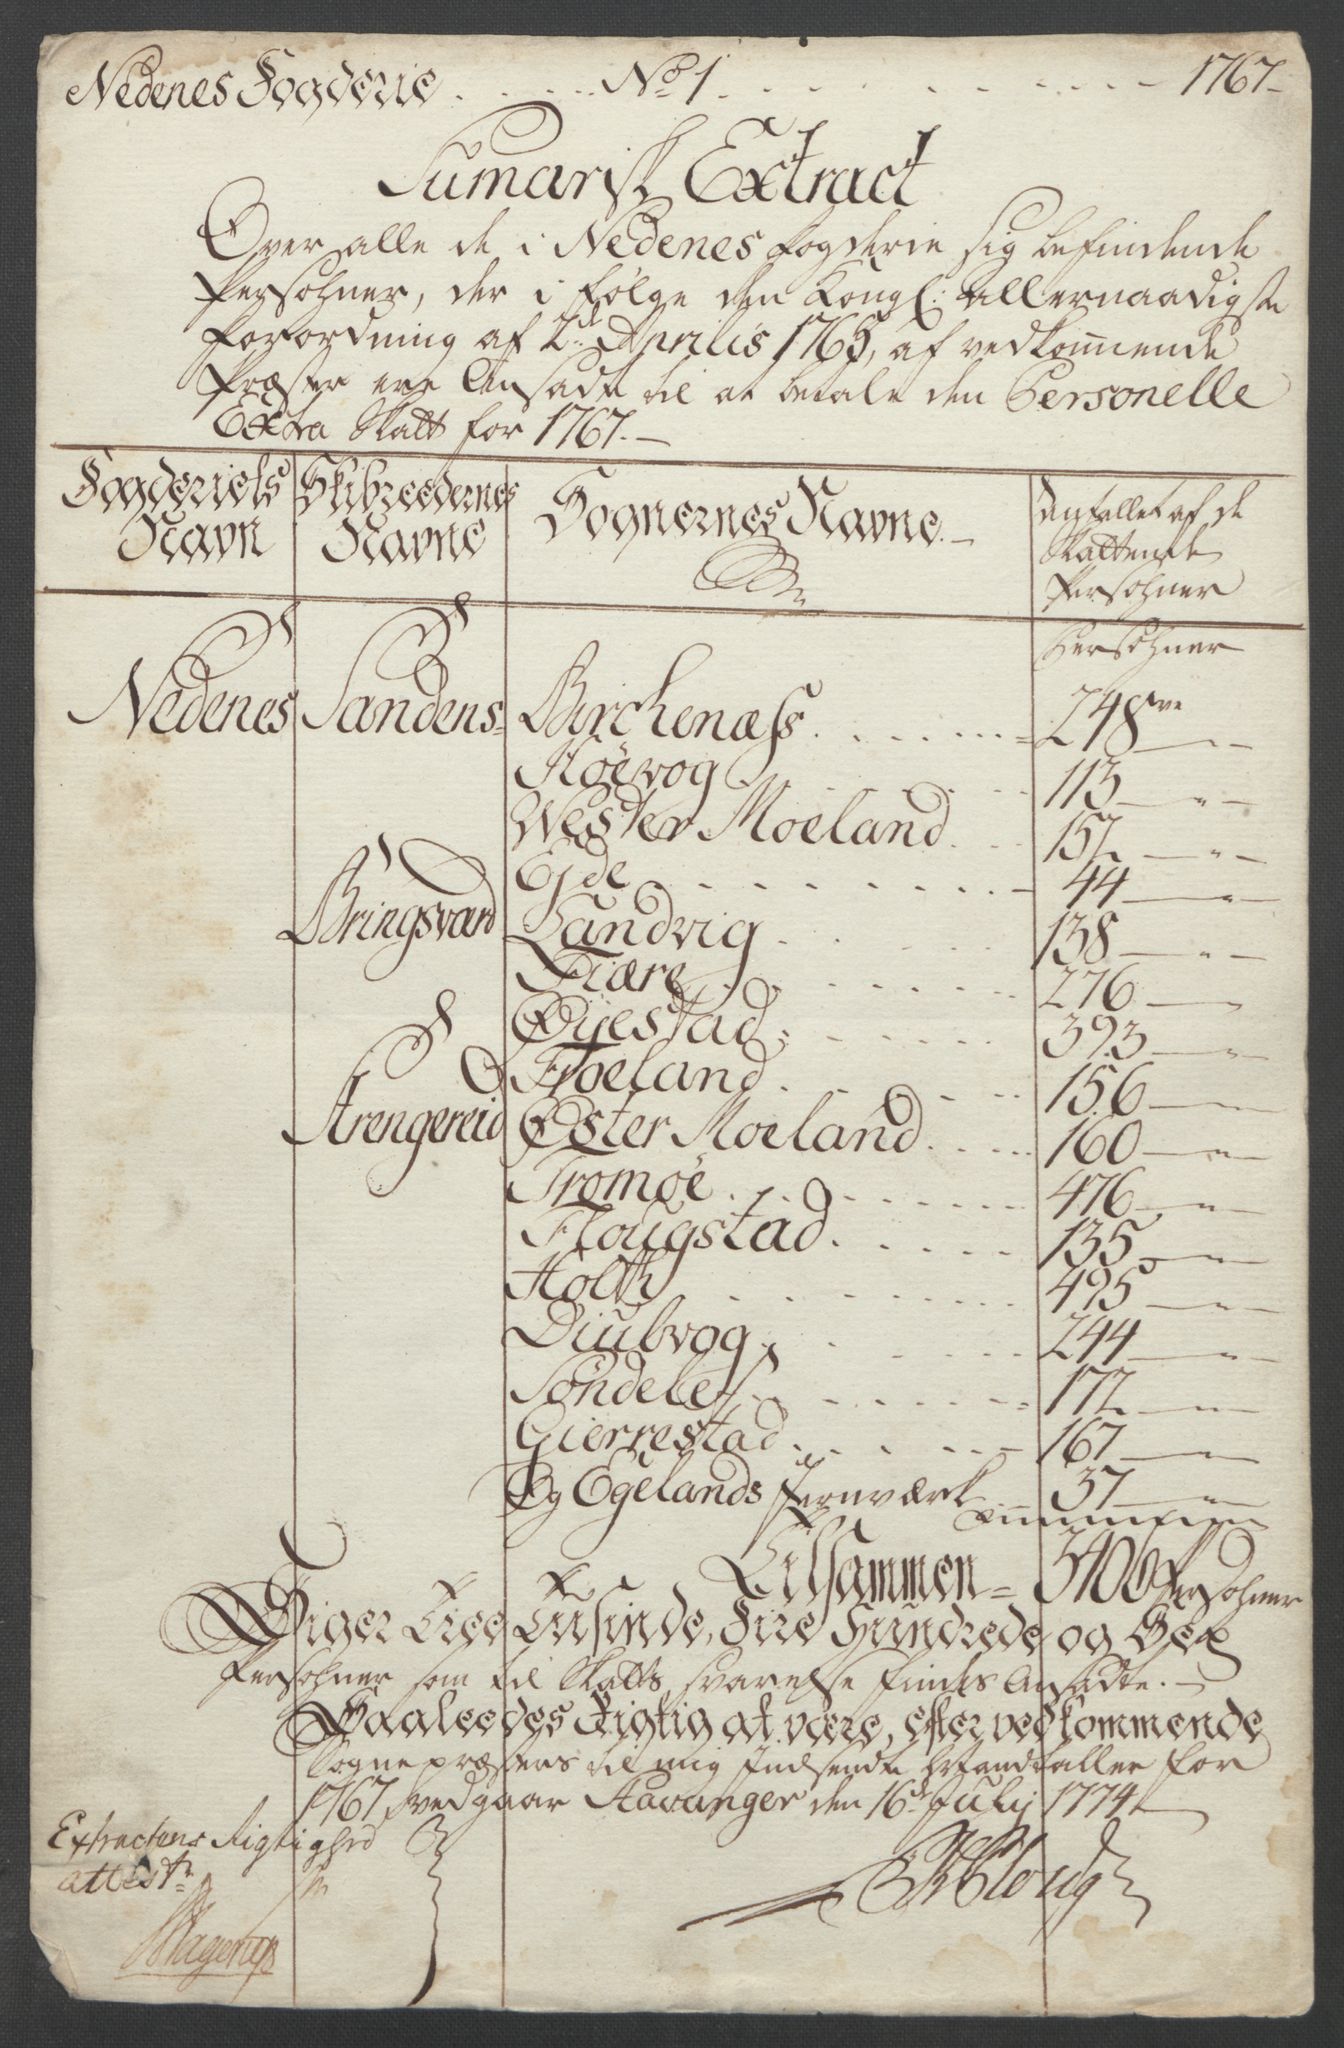 Nedenes Fogderie No 1 1767
Sumarisk Extract
Over alle de i Nedenes Fogderie sig befindende
Persohner, der i følge den Kongl: Allernaadigste
Forordning af 2de Aprilis 1765, af vedkommende
Præster ere Ansadte til at betale den Personelle
Extra Skatt for 1767.
Fogderiets Navn | Skibreedernes Navne | Sognernes Navne | Antallet af de Skattende Persohner
Persohner
Nedenes Sandens Birchenæss 248
Høevog 113
Wester Moeland 152
Ejde 44
Bringsværd Landvig 138
Fiære 276
Øyestad 393
Froeland 156
Strengereid Øster Moeland 160
Tromøe 476
Flougstad 135
Holth 495
Diubvog 244
Søndelef 172
Gierrestad 167
Og Egelands Jernværck 37
Tilsammen 3406 Persohner
Siger Tree Tusinde, Fire Hundrede og Sex
Persohner som til Skatts svarelse findes Ansadte.
Saaleedes Rigtig at være, efter vedkommende
Sognepræsters til mig Indsendte Mandtaller for
1767, vedgaar Stavanger den 16de July 1774
Extractens Rigtighed
attest:
Hagerup